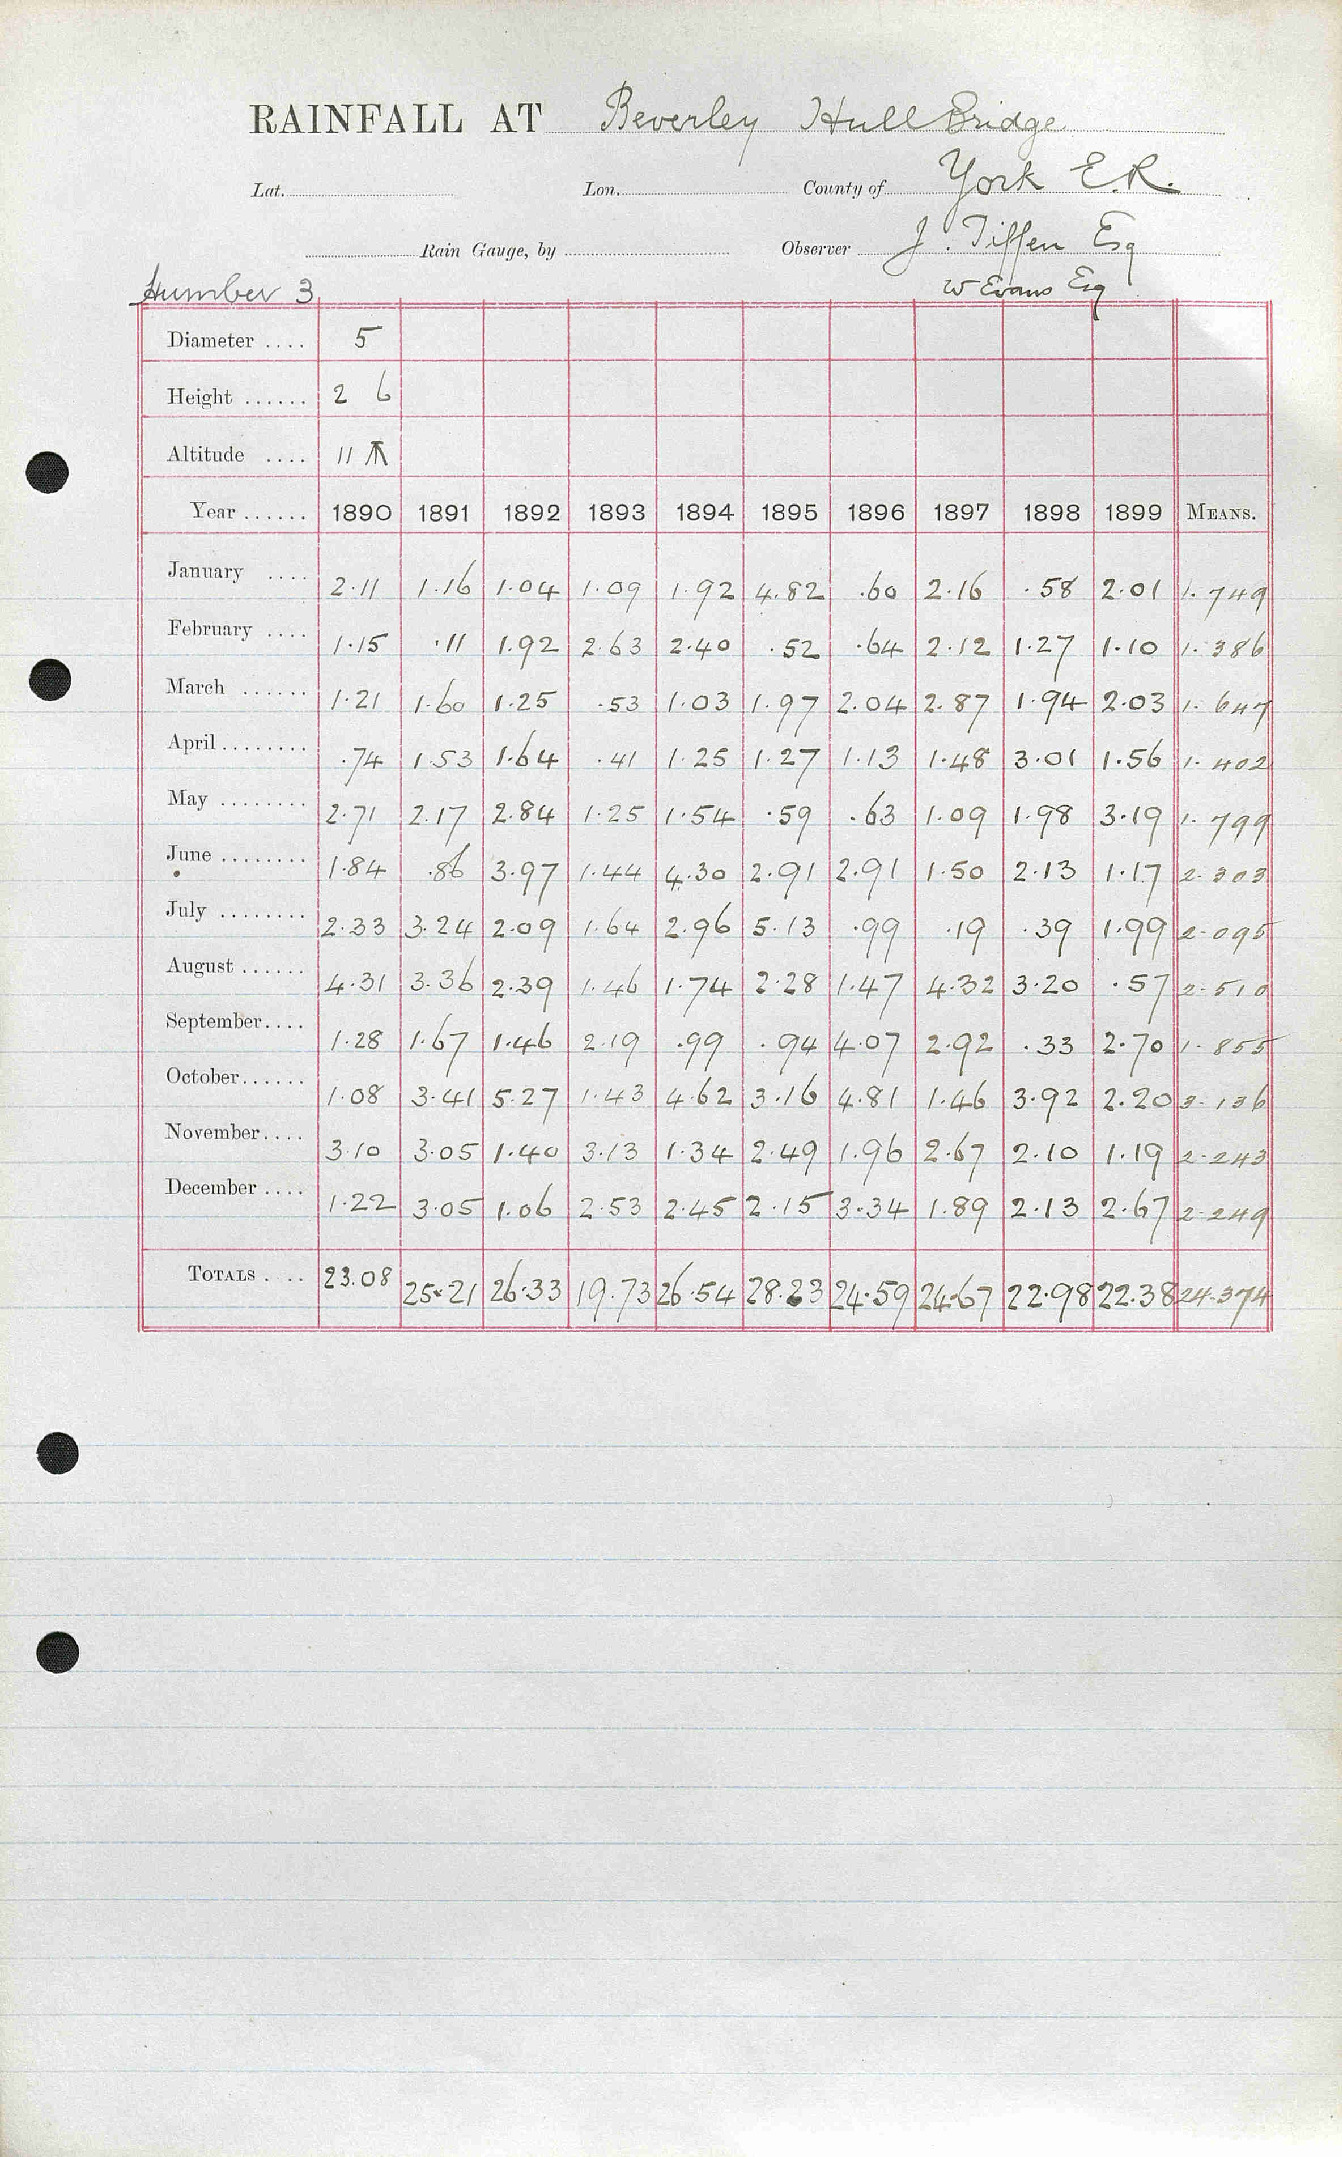 RAINFALL AT Beverley Hull Bridge
Lat. Lon. County of York E.R.
Rain Gauge, by Observer J. Tiffen Esq
Humber 3 W Evans Esq
Diameter .... 5
Height ...... 2 6
Altitude .... 11
Year ...... 1890 1891 1892 1893 1894 1895 1896 1897 1898 1899 MEANS.
January .... 2.11 1.16 1.04 1.09 1.92 4.82 .60 2.16 .58 2.01 1.749
February .... 1.15 .11 1.92 2.63 2.40 .52 .64 2.12 1.27 1.10 1.386
March ...... 1.21 1.60 1.25 .53 1.03 1.97 2.04 2.87 1.94 2.03 1.647
April ........ .74 1.53 1.64 .41 1.25 1.27 1.13 1.48 3.01 1.56 1.402
May ........ 2.71 2.17 2.84 1.25 1.54 .59 .63 1.09 1.98 3.19 1.799
June ........ 1.84 .86 3.97 1.44 4.30 2.91 2.91 1.50 2.13 1.17 2.303
July ........ 2.33 3.24 2.09 1.64 2.96 5.13 .99 .19 .39 1.99 2.095
August ...... 4.31 3.36 2.39 1.46 1.74 2.28 1.47 4.32 3.20 .57 2.510
September .... 1.28 1.67 1.46 2.19 .99 .94 4.07 2.92 .33 2.70 1.855
October ...... 1.08 3.41 5.27 1.43 4.62 3.16 4.81 1.46 3.92 2.20 3.136
November .... 3.10 3.05 1.40 3.13 1.34 2.49 1.96 2.67 2.10 1.19 2.243
December .... 1.22 3.05 1.06 2.53 2.45 2.15 3.34 1.89 2.13 2.67 2.249
TOTALS .... 23.08 25.21 26.33 19.73 26.54 28.23 24.59 24.67 22.98 22.38 24.374